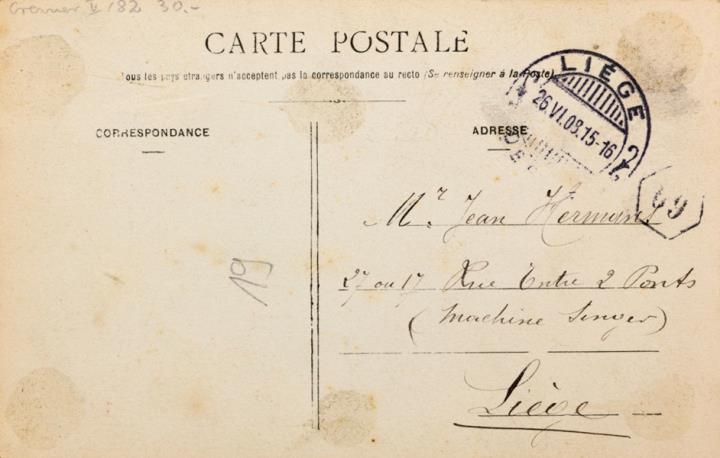 Gremer V 182 30.-
CARTE POSTALE
Tous les pays etrangers n'acceptent pas la correspondance au recto (Se renseigner à la Poste)
LIÉGE 2
26.VI.08.15-16
CORRESPONDANCE
ADRESSE
49
Mr. Jean Hermans
27 ou 17 Rue Entre 2 Ponts
(Machine Singer)
Liège
19